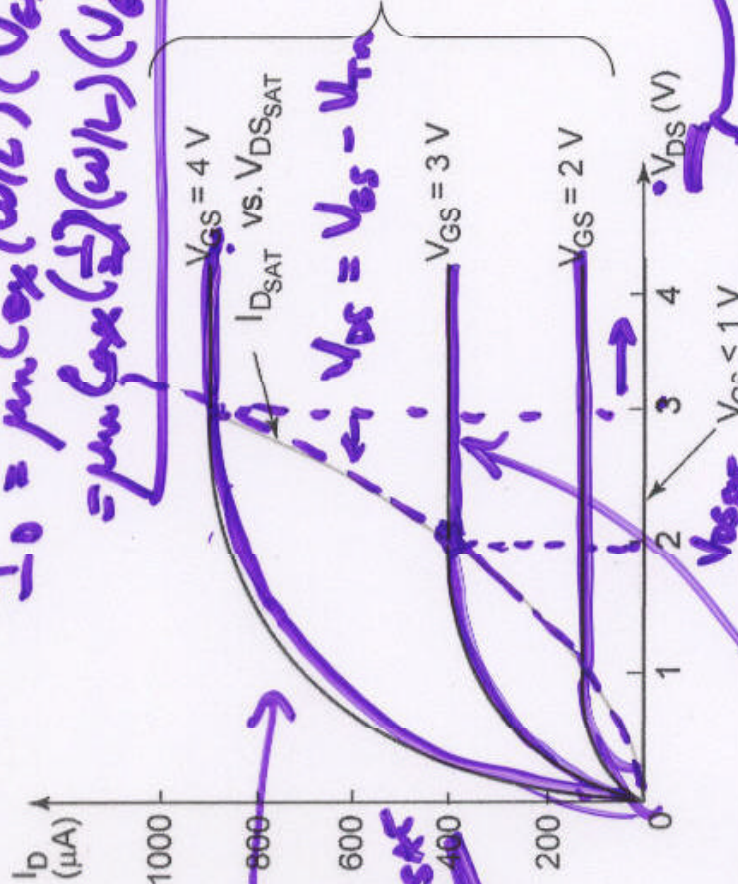 I_D = μ_n C_ox (W/L) (V_G
= μ_n C_ox (1/2) (W/L) (V_G
I_D
(μA)
1000
800
600
400
200
0
1
2
3
4
V_DS (V)
V_GS = 4 V
I_D_SAT vs. V_DS_SAT
V_DS = V_GS - V_Tn
V_GS = 3 V
V_GS = 2 V
V_GS < 1 V